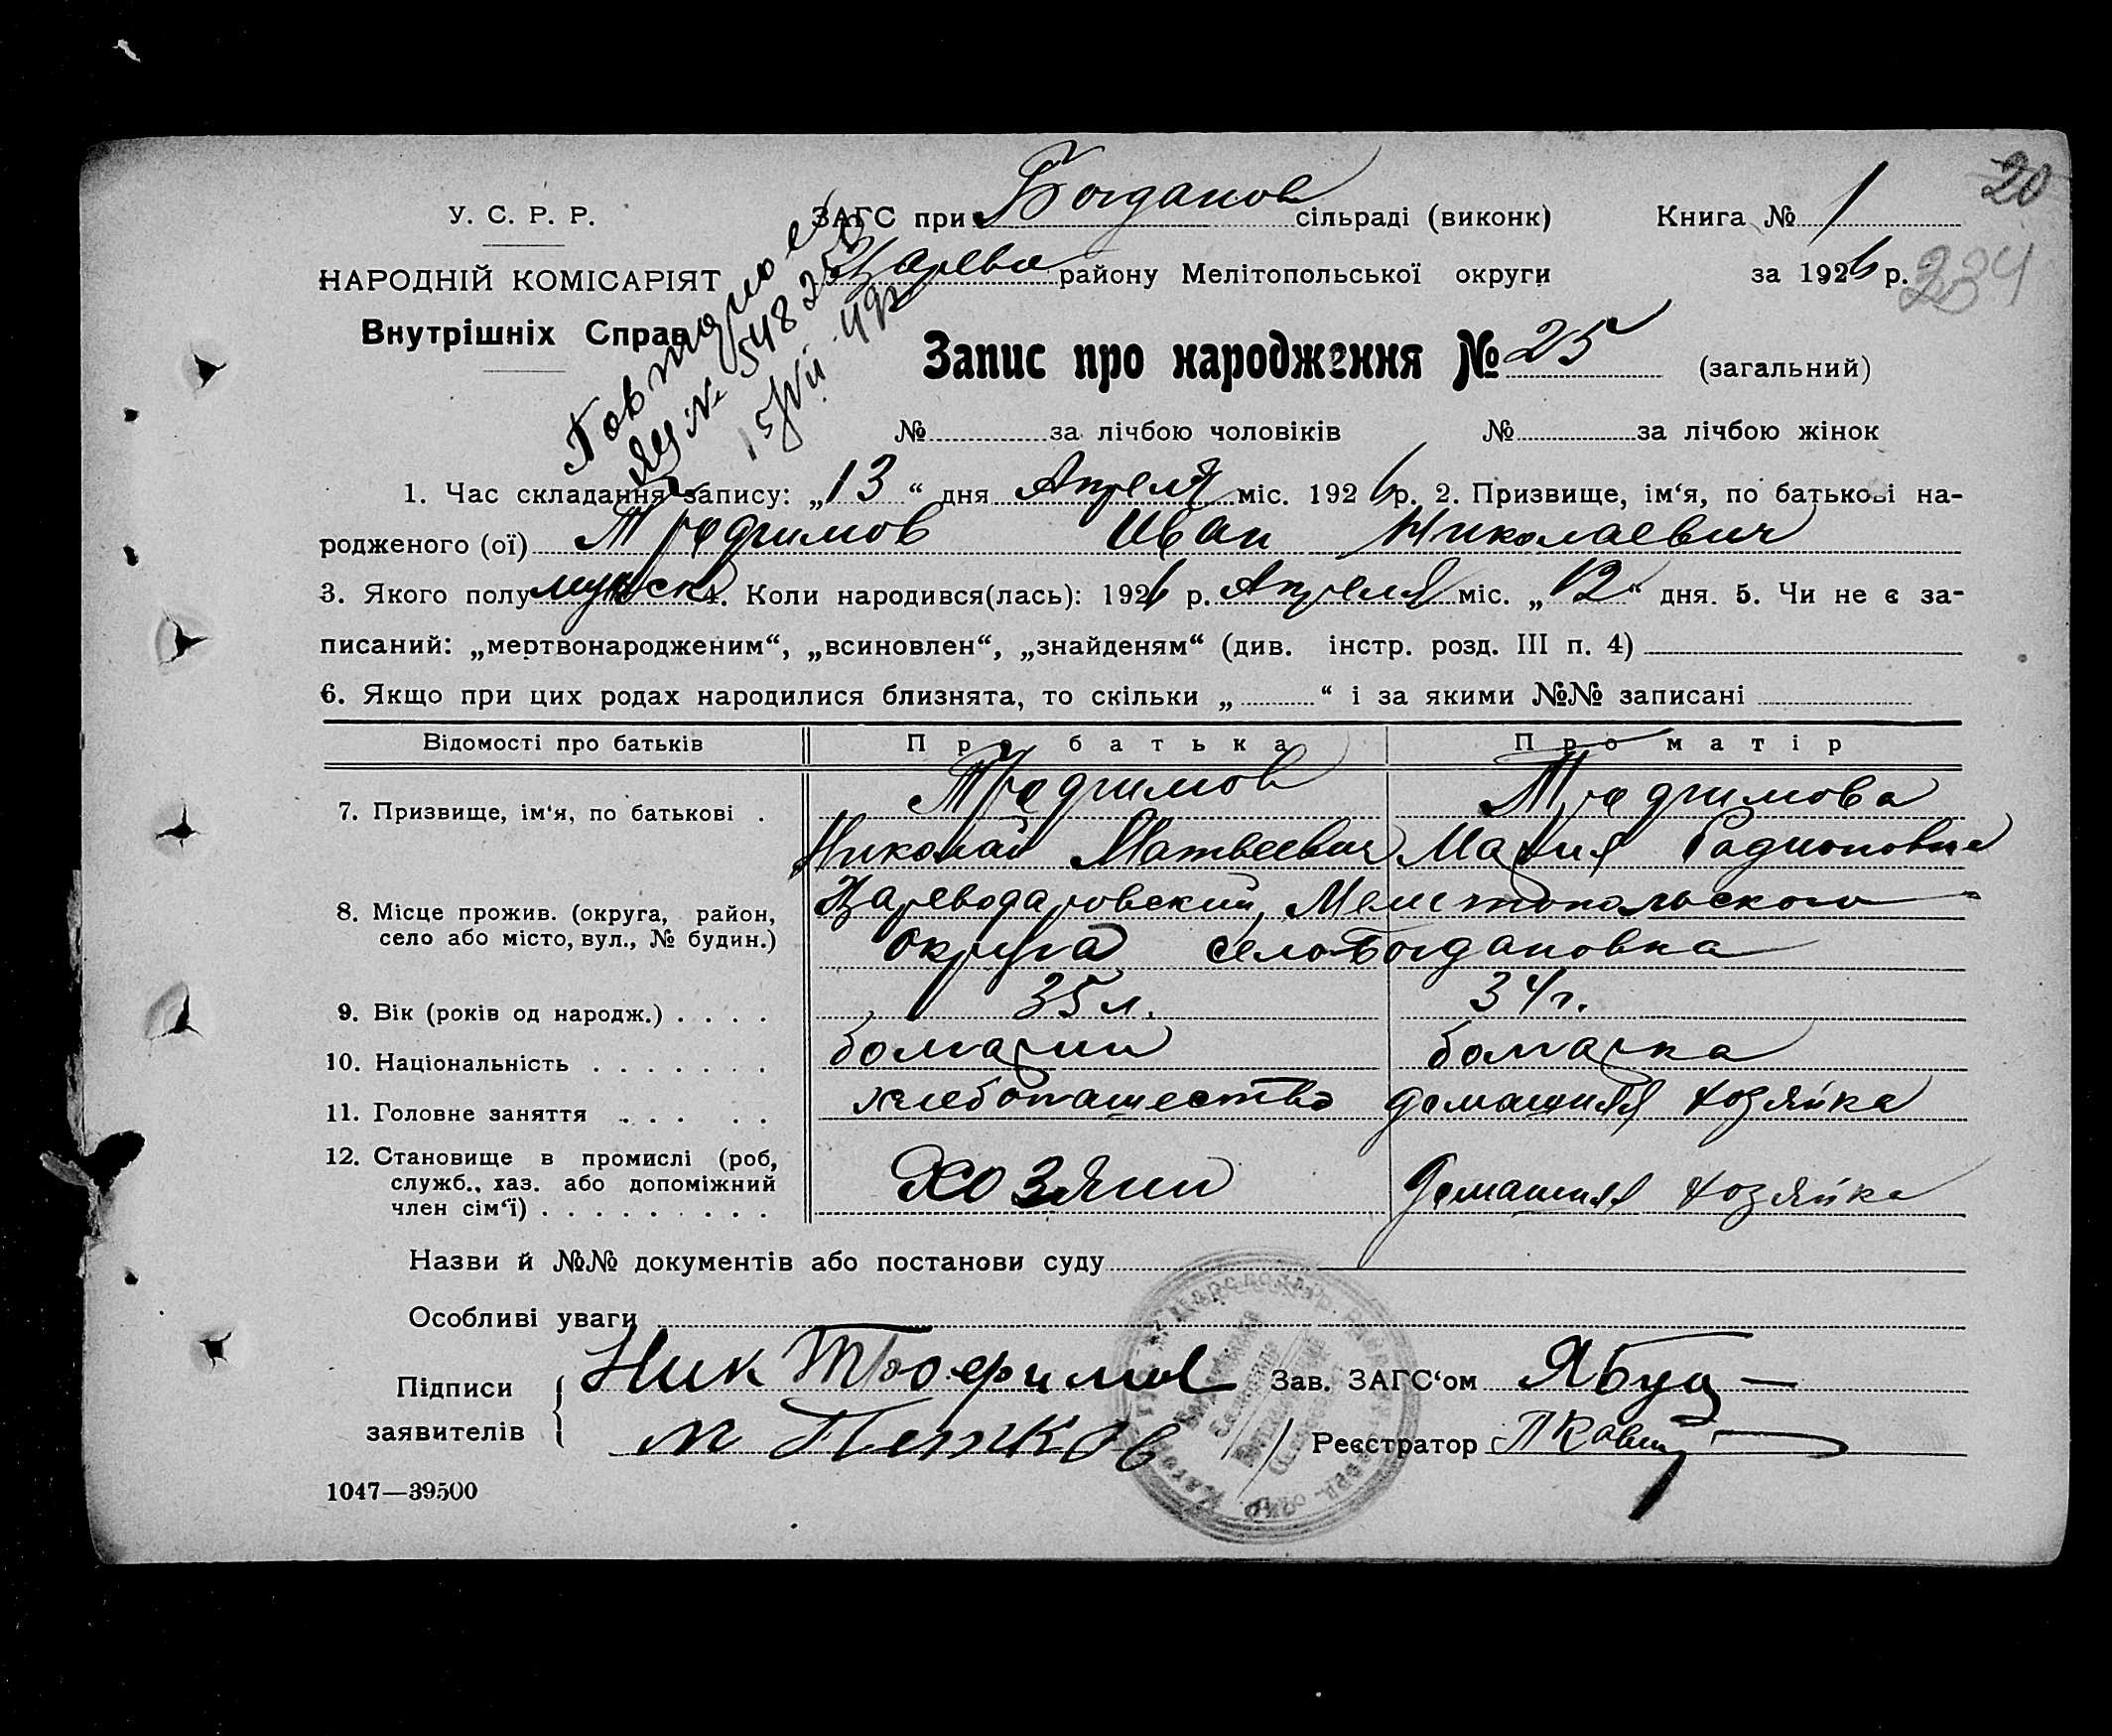 20
У. С. Р. Р.
ЗАГС при Богданов сільраді (виконк)
Книга № 1
НАРОДНІЙ КОМІСАРІЯТ
Царево району Мелітопольської округи
за 1926 р.
234
Внутрішніх Справ
Запис про народження № 25 (загальний)
Повторное
№ 548
№ за лічбою чоловіків № за лічбою жінок
1. Час складання запису: „13“ дня Апреля міс. 1926 р. 2. Призвище, ім‘я, по батькові на-
родженого (ої) Трофимов Иван Николаевич
3. Якого полу мужск 4. Коли народився(лась): 1926 р. Апреля міс. „12“ дня. 5. Чи не є за-
писаний: „мертвонародженим“, „всиновлен“, „знайденям“ (див. інстр. розд. III п. 4)
6. Якщо при цих родах народилися близнята, то скільки „ “ і за якими №№ записані
Відомості про батьків Про батька Про матір
Трофимов Трофимова
7. Призвище, ім‘я, по батькові .
Николай Матвеевич Мария Родионовна
8. Місце прожив. (округа, район, село або місто, вул., № будин.)
Цареводаровский, Мелитопольского
округа село Богдановка
9. Вік (років од народж.) . . . . 35 л. 34 г.
10. Національність . . . . . . . болгарин болгарка
11. Головне заняття . . . . . хлебопашество домашняя хозяйка
12. Становище в промислі (роб, служб., хаз. або допоміжний член сім‘ї) . . . . . . . . .
хозяин домашняя хозяйка
Назви й №№ документів або постанови суду
Особливі уваги
Підписи заявителів
Ник Трофимов
м Петков
Зав. ЗАГС‘ом
Реєстратор
1047—39500